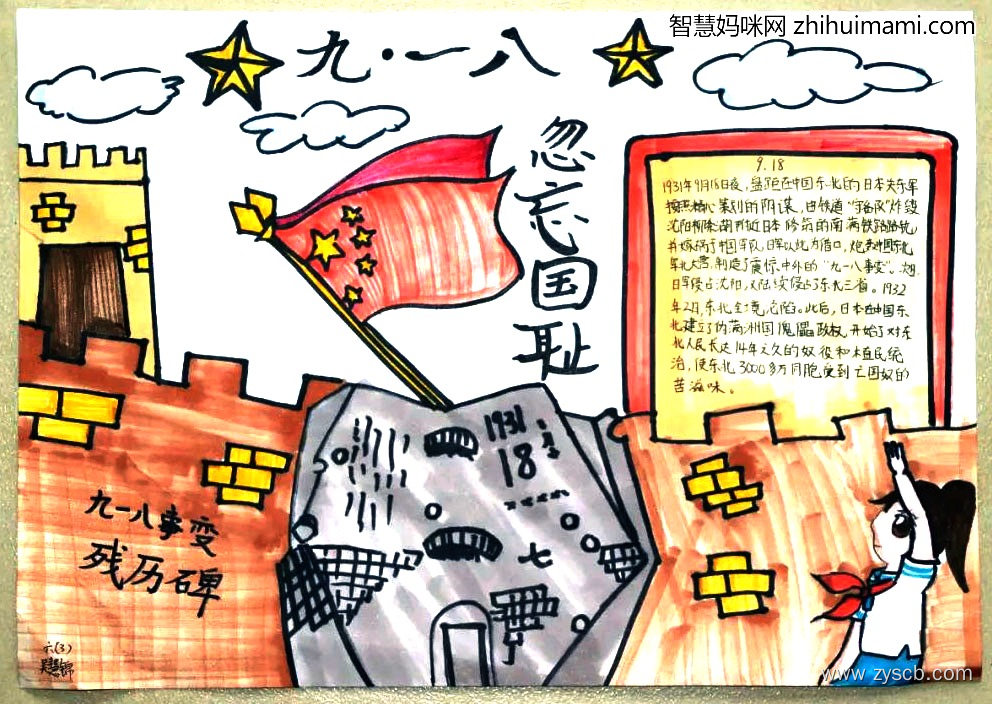 智慧妈咪网 zhihuimami.com
九·一八
忽忘国耻
9.18
1931年9月18日夜，盘距在中国东北的日本关东军
按照精心策划的阴谋，由铁道“守备队”炸毁
沈阳柳条湖附近日本修筑的南满铁路路轨
并嫁祸于中国军队，日军以此为借口，炮轰中国东北
军北大营，制造了震惊中外的“九一八事变”。次日，
日军侵占沈阳，又陆续侵占了东北三省。1932
年2月，东北全境沦陷。此后，日本在中国东
北建立了伪满洲国傀儡政权，开始了对东
北人民长达14年之久的奴役和殖民统
治，使东北3000多万同胞受到亡国奴的
苦滋味。
1931
18
七
九一八事变
残历碑
六(3)
www.zyscb.com